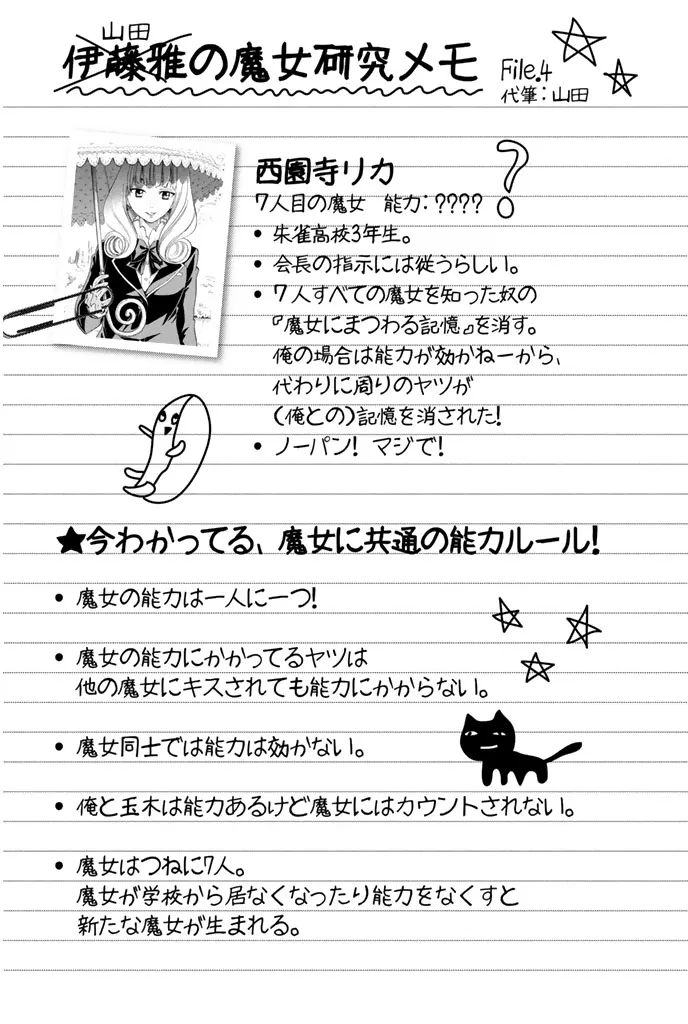 山田
伊藤雅の魔女研究メモ
File.4
代筆：山田
西園寺リカ
?
7人目の魔女 能力：????
• 朱雀高校3年生。
• 会長の指示には従うらしい。
• 7人すべての魔女を知った奴の
『魔女にまつわる記憶』を消す。
俺の場合は能力が効かねーから、
代わりに周りのヤツが
(俺との)記憶を消された!
• ノーパン! マジで!
★今わかってる、魔女に共通の能力ルール!
• 魔女の能力は一人に一つ!
• 魔女の能力にかかってるヤツは
他の魔女にキスされても能力にかからない。
• 魔女同士では能力は効かない。
• 俺と玉木は能力あるけど魔女にはカウントされない。
• 魔女はつねに7人。
魔女が学校から居なくなったり能力をなくすと
新たな魔女が生まれる。